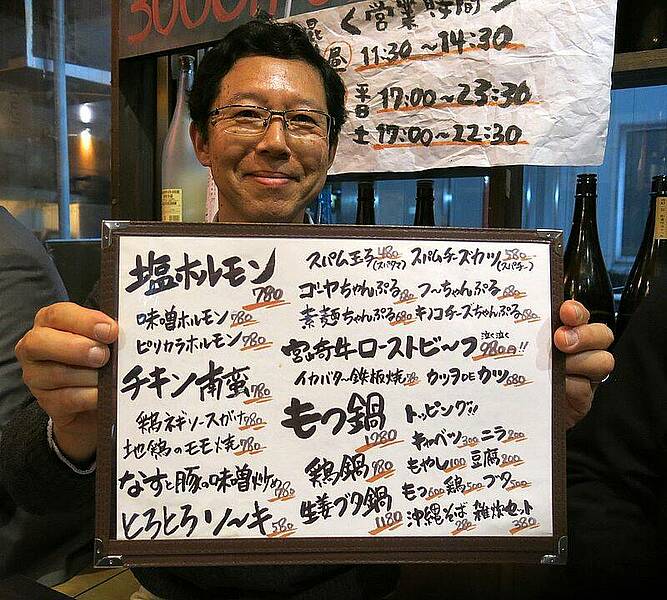 3000円
営業時間
昼 11:30〜14:30
平日 17:00〜23:30
土 17:00〜22:30
塩ホルモン 780
味噌ホルモン 780
ピリカラホルモン 780
チキン南蛮 780
鶏ネギソースがけ 780
地鶏のモモ焼 780
なすと豚の味噌炒め 780
とろとろソーキ 580
スパム玉子 480 (スパタマ) スパムチーズカツ 580 (スパチー)
ゴーヤちゃんぷる 680 フーちゃんぷる 680
素麺ちゃんぷる 680 キノコチーズちゃんぷる 680
宮崎牛ローストビーフ 泣く泣く 980円!!
イカバター鉄板焼 780 カツヲDEカツ 680
もつ鍋 1280
鶏鍋 980
生姜ブタ鍋 1180
トッピング!!
キャベツ 300 ニラ 200
もやし 100 豆腐 200
もつ 600 鶏 500 ブタ 500
沖縄そば 280 雑炊セット 380